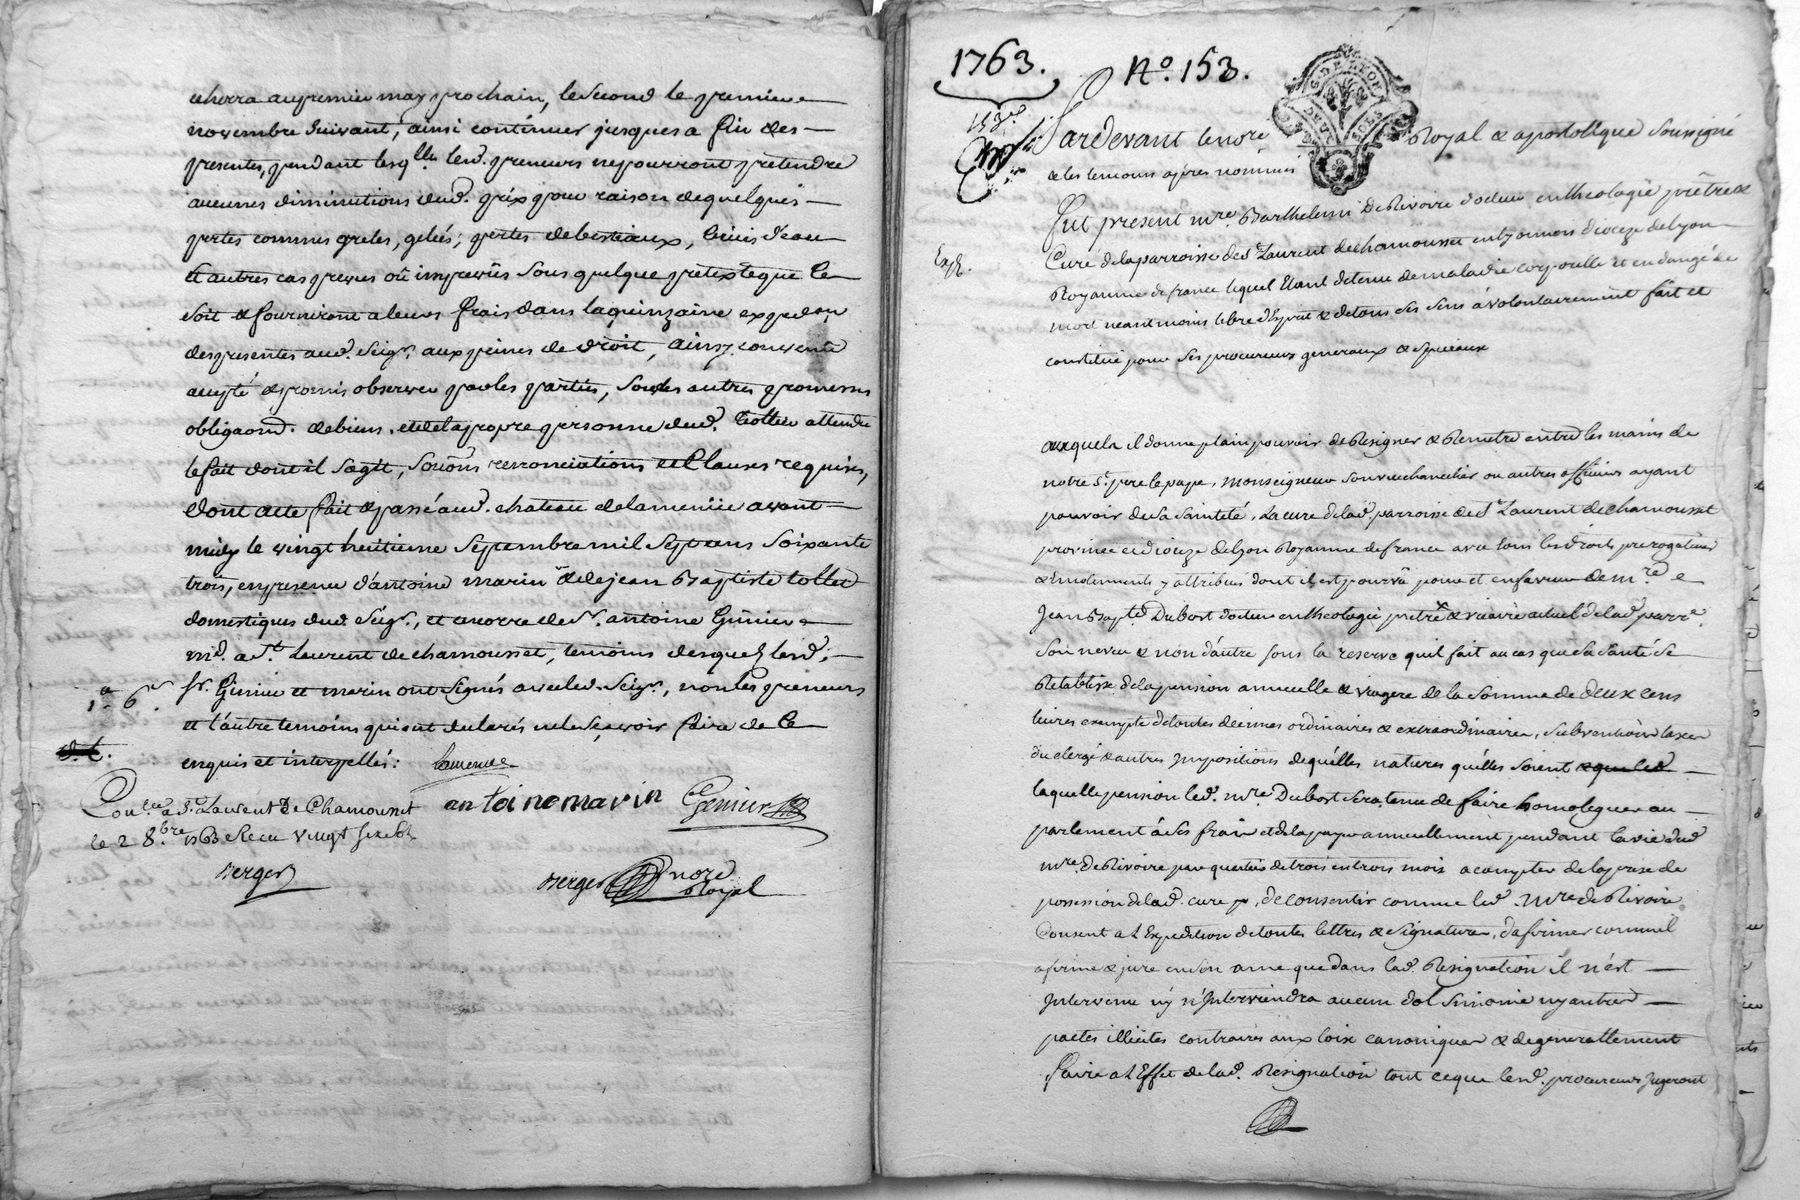 echerra au premier may prochain, le second le premier
novembre suivant, ainsi continuer jusques a fin des
presentes, pendant lesqlles lesd. preneurs ne pourront pretendre
aucunes diminutions dud. prix pour raison de quelques
pertes commes greles, gelées, pertes de bestiaux, d'eau
et autres cas prevus où imprevûs sous quelque pretexte que ce
soit & fourniront a leurs frais dans la quinzaine expedon
des presentes aud. Seigr. aux peines de droit, ainsy convenu
accepté & promis observer par les parties, sous les autres promesses
obligaons. de biens, et de la propre personne dud. tollet attendu
le fait dont il s'agit, soumons renonciations et clauses requises,
dont acte fait & passé aud. chateau de la menüe avant
midy le vingt heitieme septembre mil sept cens soixante
trois, en presence d'antoine marin & de jean Baptiste tollet
domestiques dud. Seigr., et encorre de Sr. antoine Genier
md. a St. Laurent de chamousset, temoins desquels lesd.
Sr. Genier et marin ont signés avec led. Seigr., non les preneurs
et l'autre temoins qui ont declarés ne le sçavoir faire de ce
enquis et interpellés:
antoine marin Genier
Conlle a St Laurent De Chamousset
le 2 8.bre 1763 Recu vingt six sols
Berger
Berger nore
Royal
1763. No. 153.
Pardevant le nore Royal & apostolique soussigné
& les temoins apres nommés
Fut present mre. Barthelemi De Rivoire docteur en theologie prêtre &
Curé de la parroisse de St Laurent de chamousset en lyonnois dioceze de lyon
Expé.
Royaume de france lequel Etant detenu de maladie corporelle et en dangé de
mort neantmoins libre d'Esprit & de tous ses sens à volontairement fait et
constitué pour ses procureurs generaux & speciaux
auxquels il donne plain pouvoir de Resigner & Remetre entre les mains de
notre St. pere le pape, monseigneur son vicechancelier ou autres officiers ayant
pouvoir de sa Sainteté, la cure de lad. parroisse de St Laurent de chamousset
province et dioceze de lyon Royaume de france avec tous les droits prerogatives
& Emolements y attribués dont il est pourvû pour et en faveur de mre.
Jean Baptte Dubost docteur en theologie pretre & vicaire actuel de lad. parre.
son neveu & non d'autre sous la reserve qu'il fait au cas que sa santé se
Retablisse de la pension annuelle & viagere de la somme de deux cens
livres exempte de toutes decimes ordinaires & extraordinaires, subventions taxes
du clergé & autres Impositions de quélles natures quélles soient
laquelle pension led. mre. Dubost sera tenu de faire homologuer au
parlement à ses frais et de la payer annuellement pendant la vie dud.
mre. de Rivoire par quartier de trois en trois mois a compter de la prise de
possession de lad. cure, de consentir comme led. mre de Rivoire
Consent a l'Expedition de toutes lettres & signatures, d'afirmer comme il
afirme & jure en son ame que dans lad. Resignation il n'est
Intervenu ny n'Interviendra aucun dol simonie ny autres
pactes illicites contraires aux loix canoniques & de generallement
faire a l'Effet de lad. Resignation tout ce que lesd. procureurs jugeront